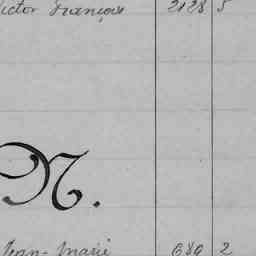 Victor François 2128 5
N.
Jean-Marie 680 2